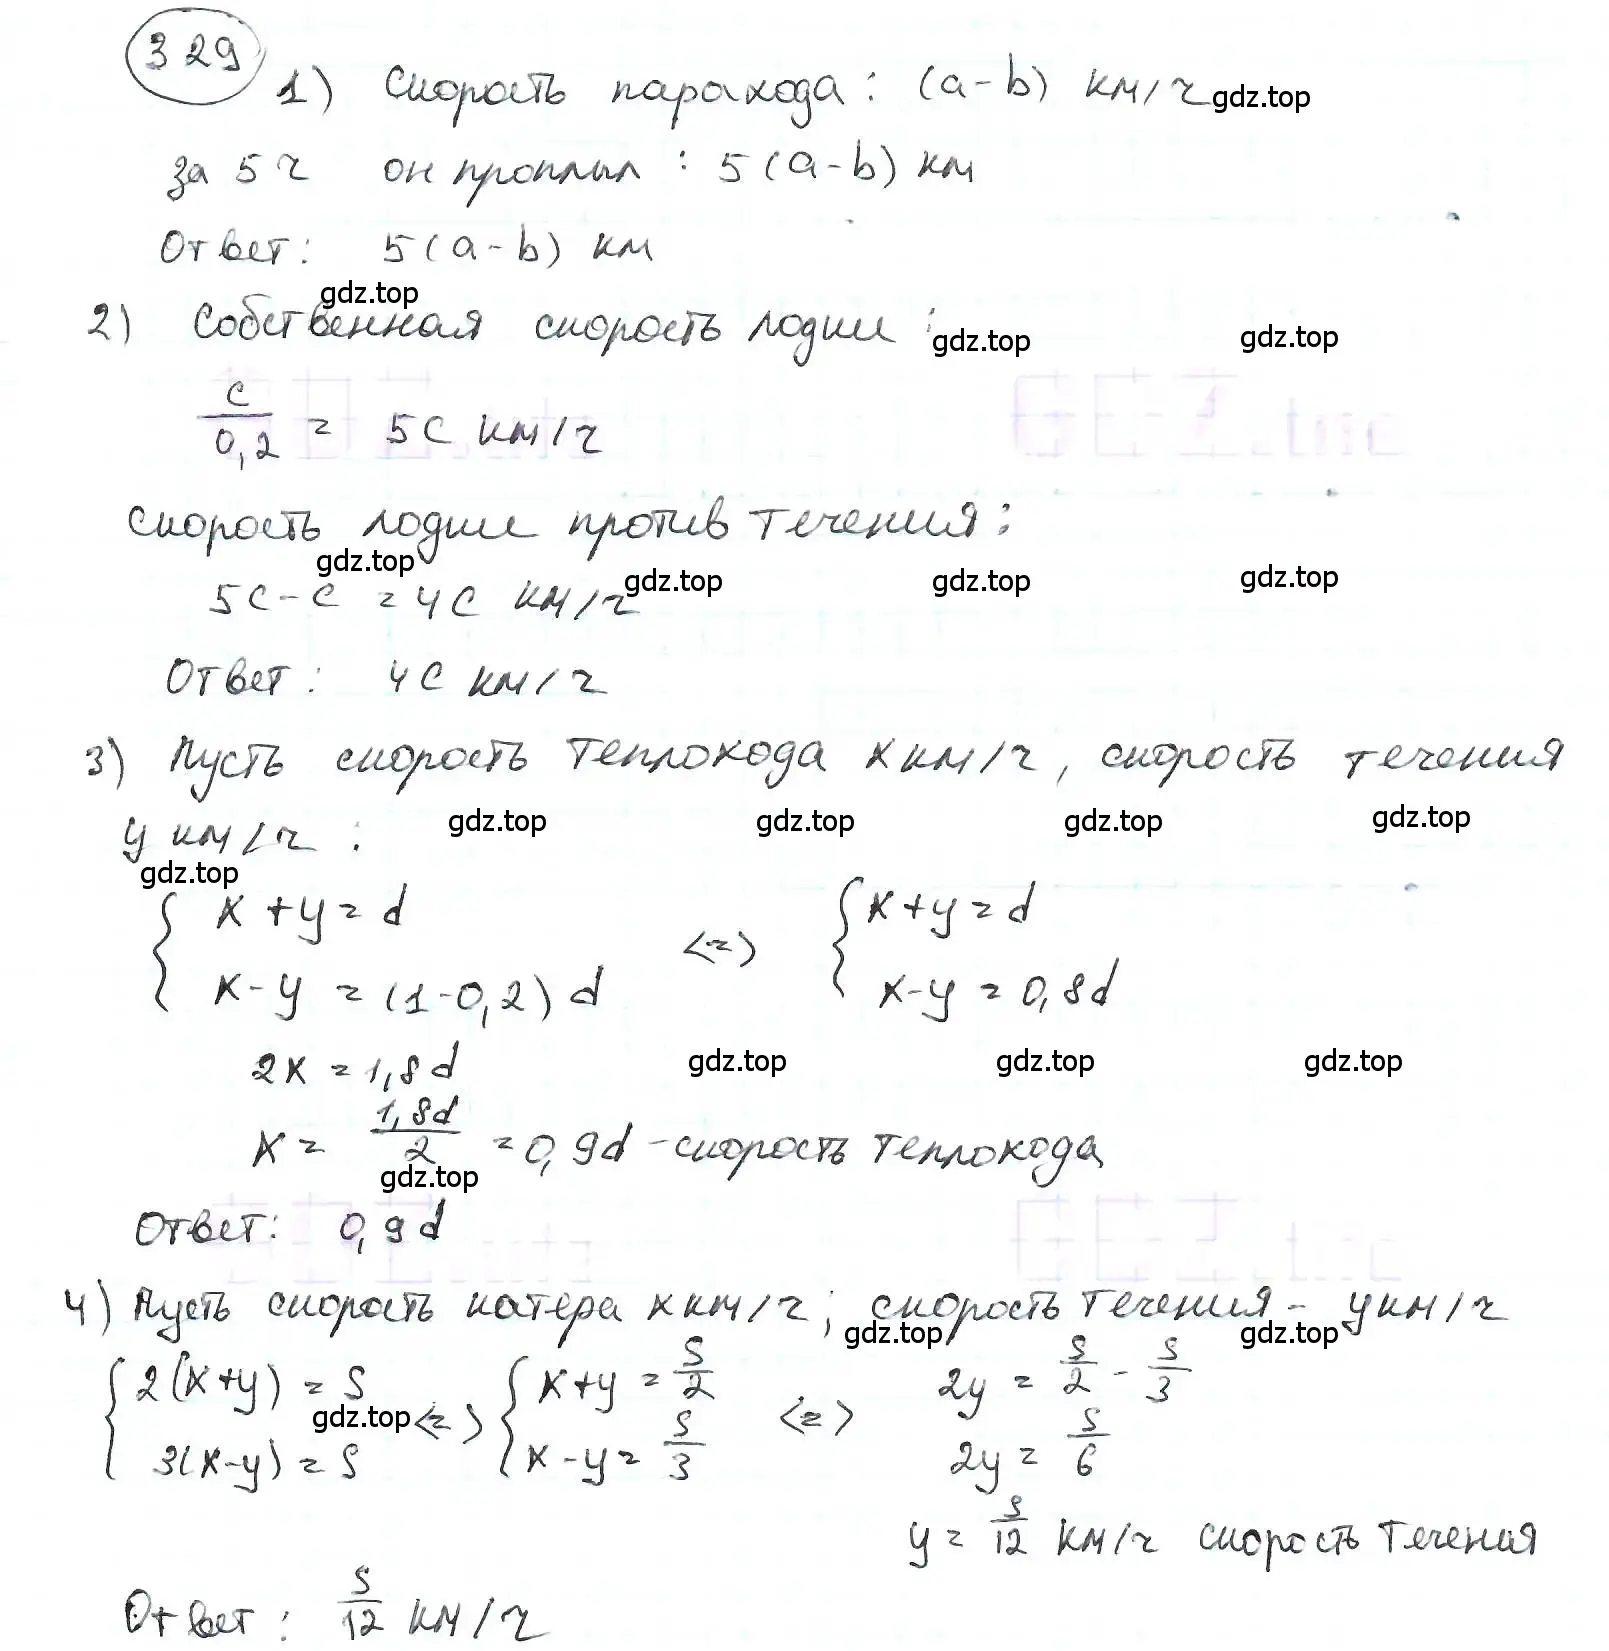 329
1) Скорость парохода: (a-b) км/ч gdz.top
за 5 ч он проплыл: 5(a-b) км
Ответ: 5(a-b) км
gdz.top
2) Собственная скорость лодки: gdz.top gdz.top
c/0,2 = 5c км/ч
скорость лодки против течения:
gdz.top gdz.top gdz.top gdz.top
5c-c = 4c км/ч
Ответ: 4c км/ч
3) Пусть скорость теплохода x км/ч, скорость течения
y км/ч: gdz.top gdz.top gdz.top gdz.top
gdz.top
{ x+y=d <=> { x+y=d
x-y=(1-0,2)d x-y=0,8d
2x=1,8d gdz.top gdz.top gdz.top
x= 1,8d/2 =0,9d -скорость теплохода
gdz.top
Ответ: 0,9d
4) Пусть скорость катера x км/ч; скорость течения - y км/ч
gdz.top gdz.top
{ 2(x+y)=S <=> { x+y=S/2 <=> 2y=S/2-S/3
gdz.top
3(x-y)=S x-y=S/3 2y=S/6
y=S/12 км/ч скорость течения
Ответ: S/12 км/ч